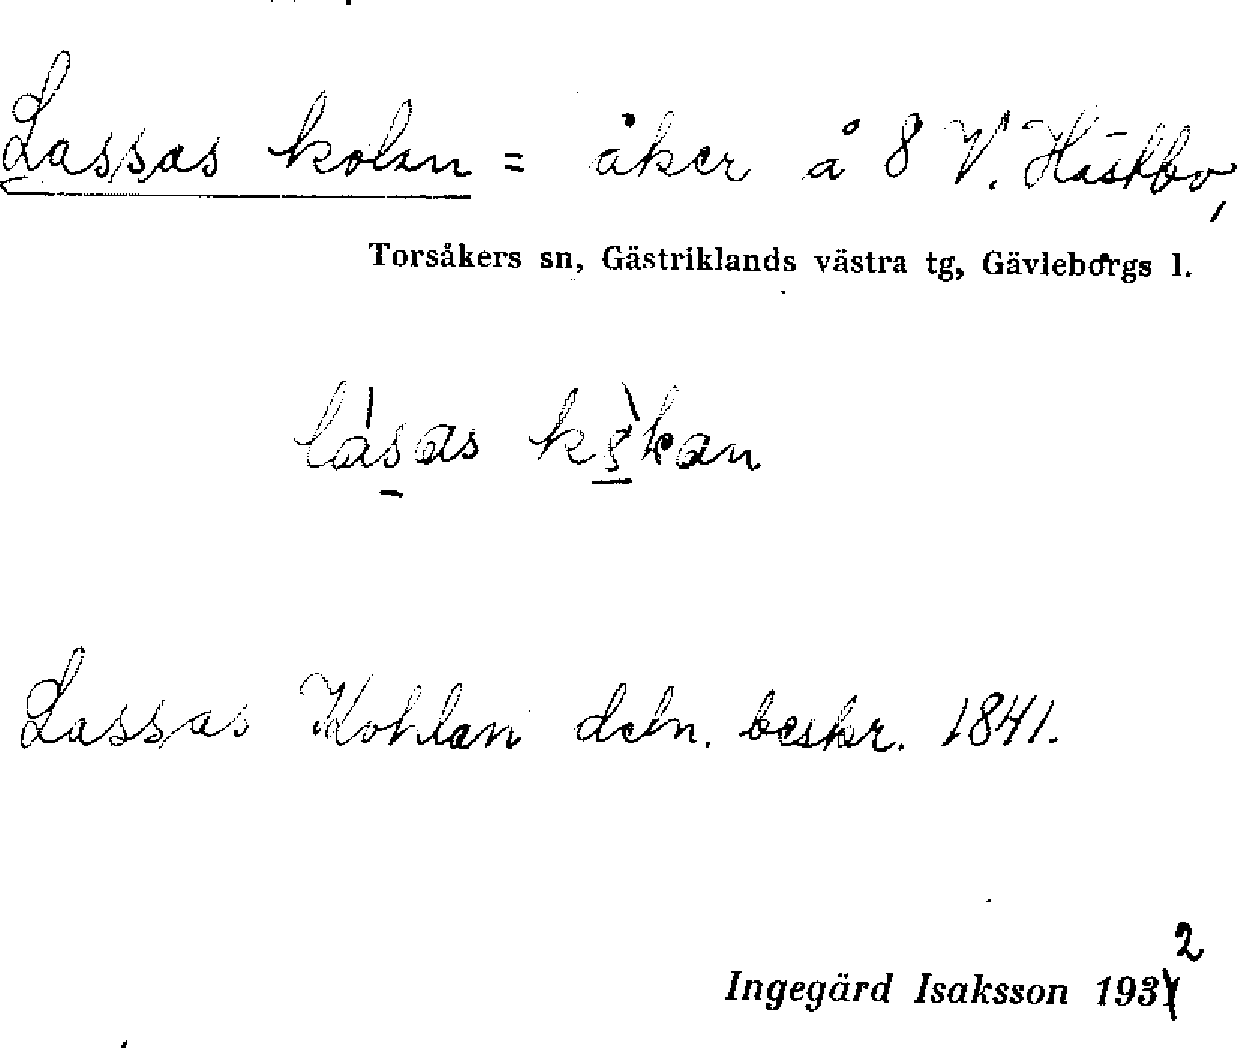 Lassas kolan = åker å 8 V. Hästbo,
Torsåkers sn, Gästriklands västra tg, Gävleborgs l.
Lassas Kohlan deln. beskr. 1841.
Ingegärd Isaksson 1932